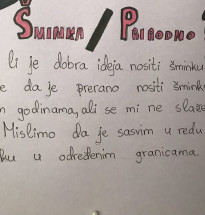 ŠMINKA / PRIRODNO
li je dobra ideja nositi šminku
e da je prerano nositi šmink
godinama, ali se mi ne slaže
Mislimo da je sasvim u redu
ku u određenim granicama.